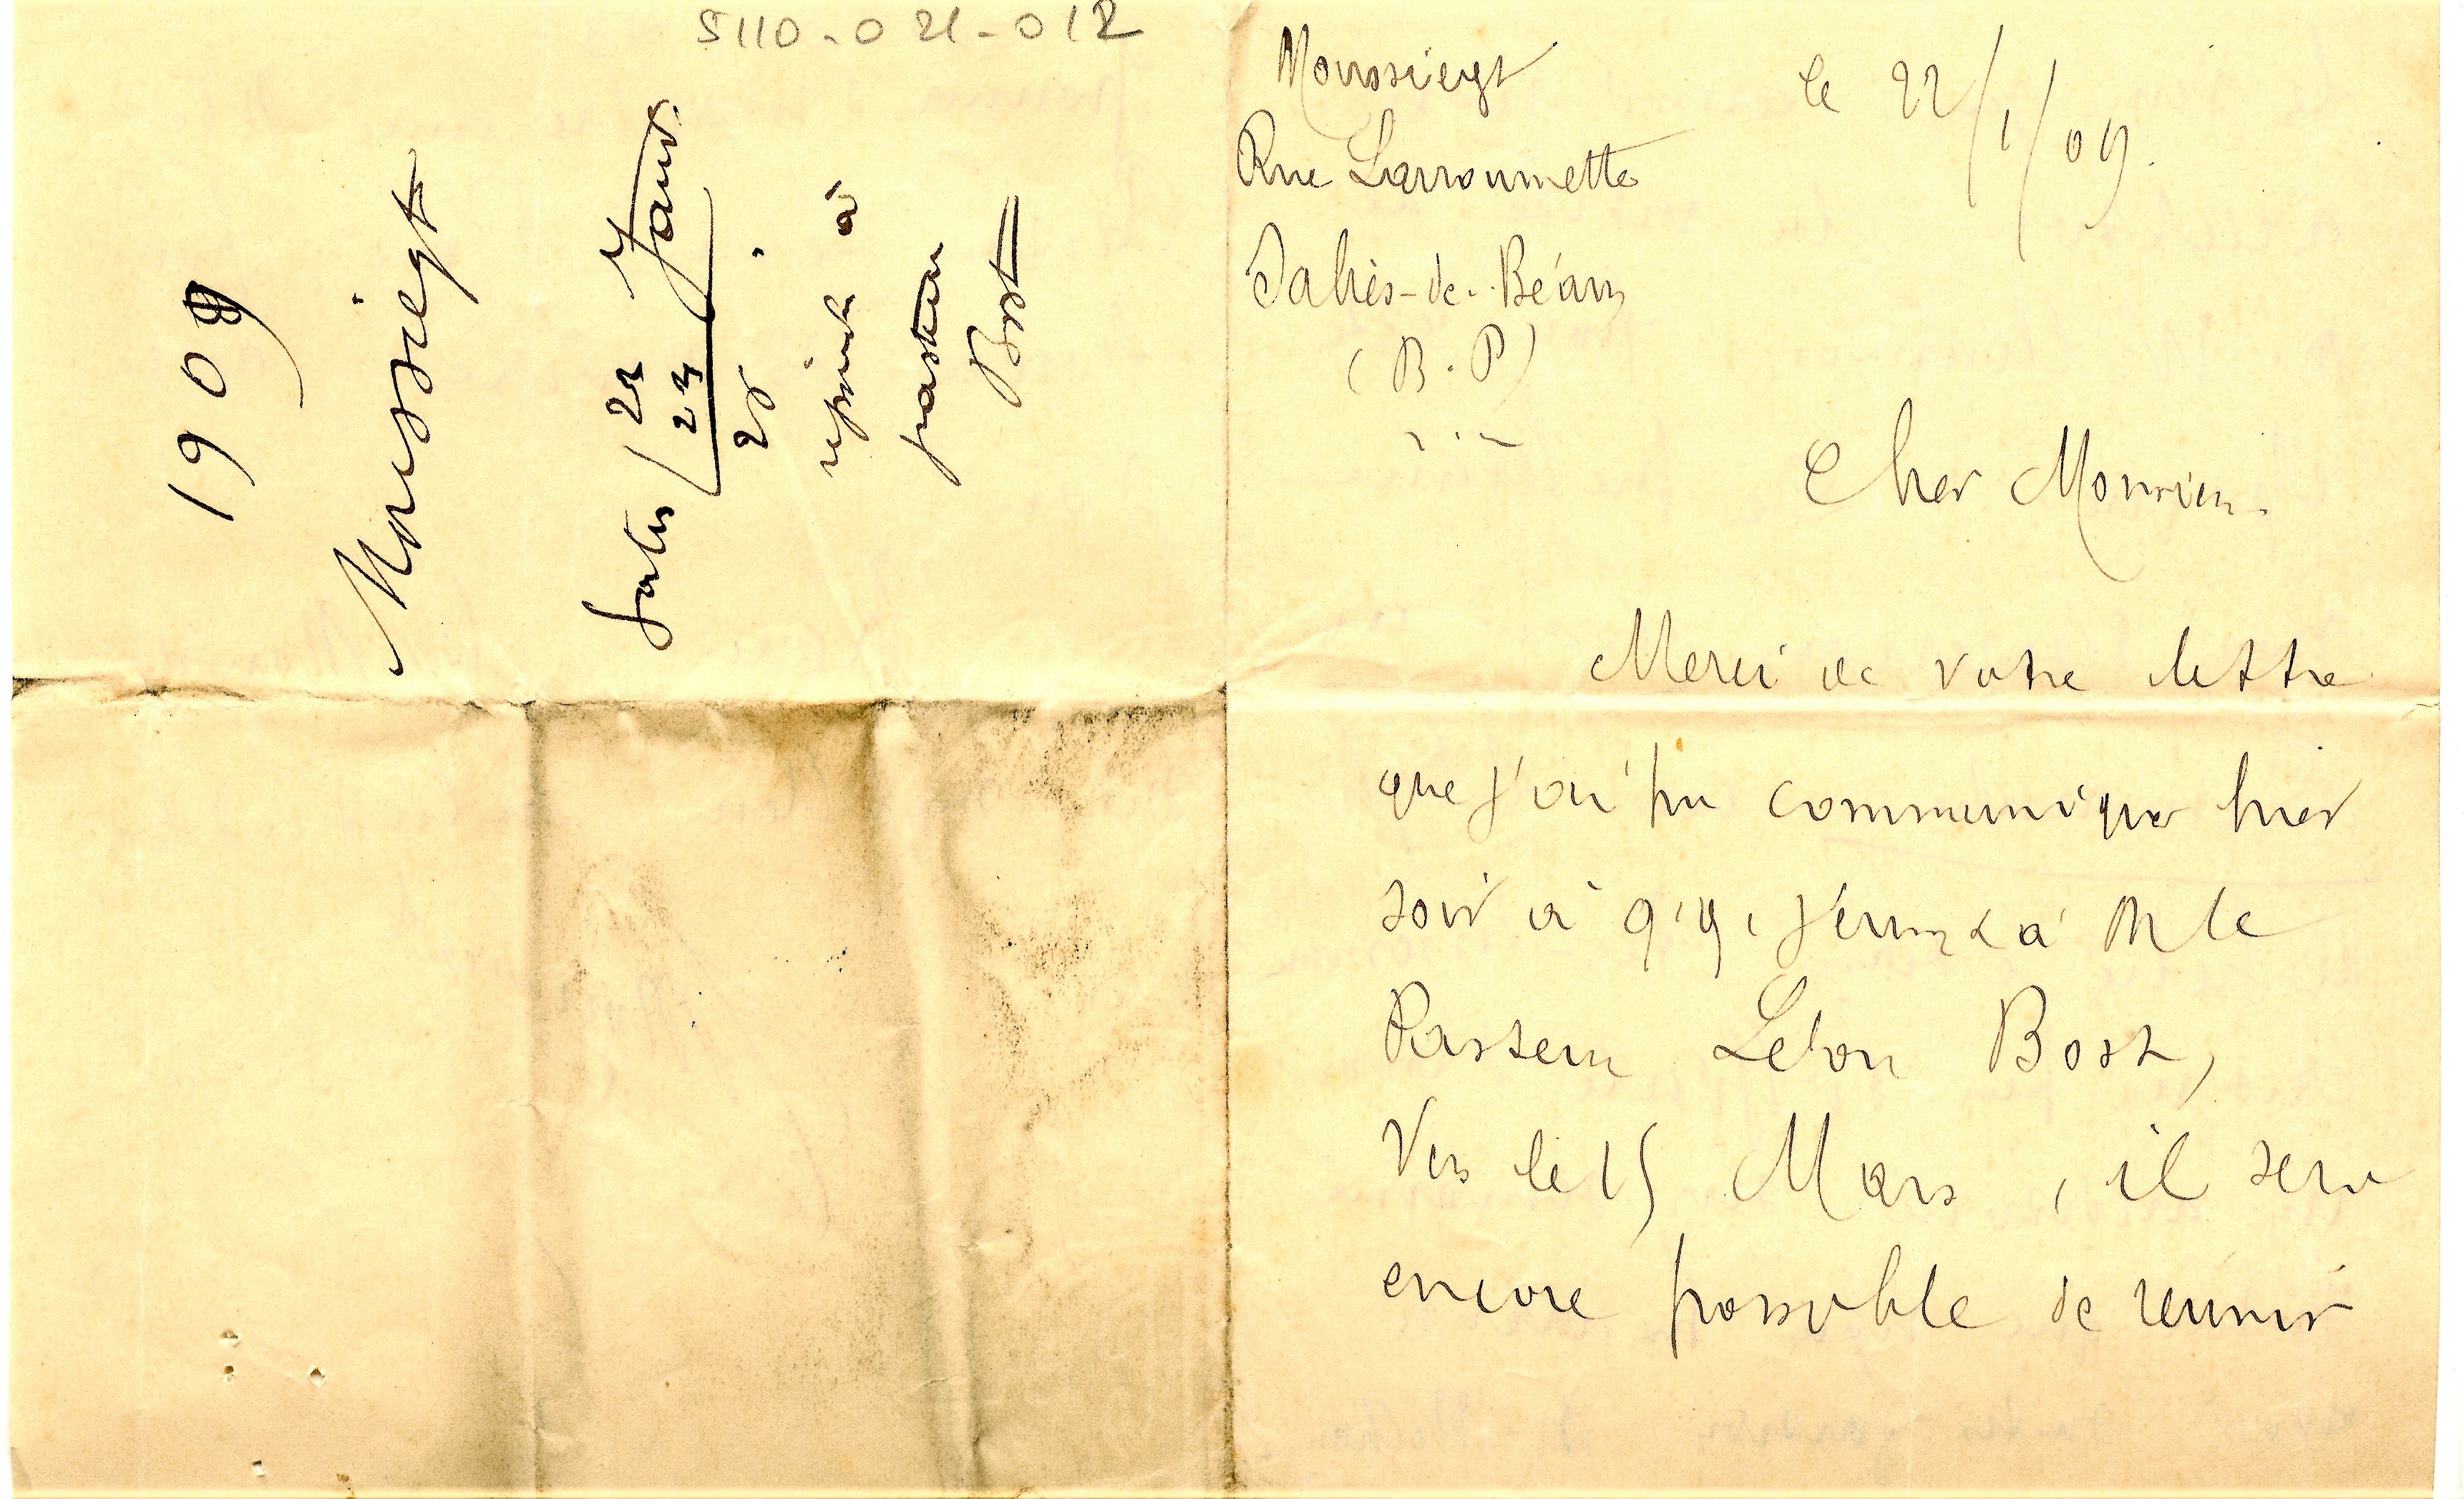 5110-021-012
1909
Moussiegt
Salies 22 Janv.
23
25 "
répondu à
pasteur
Bost
Moussiegt
Rue Larroumette
Salies-de-Béarn
(B.P)
le 22/1/09.
Cher Monsieur.
Merci de votre lettre
que j'ai pu communiquer hier
soir à
à M le
Pasteur Léon Bost,
Vers le 15 Mars, il sera
encore possible de réunir